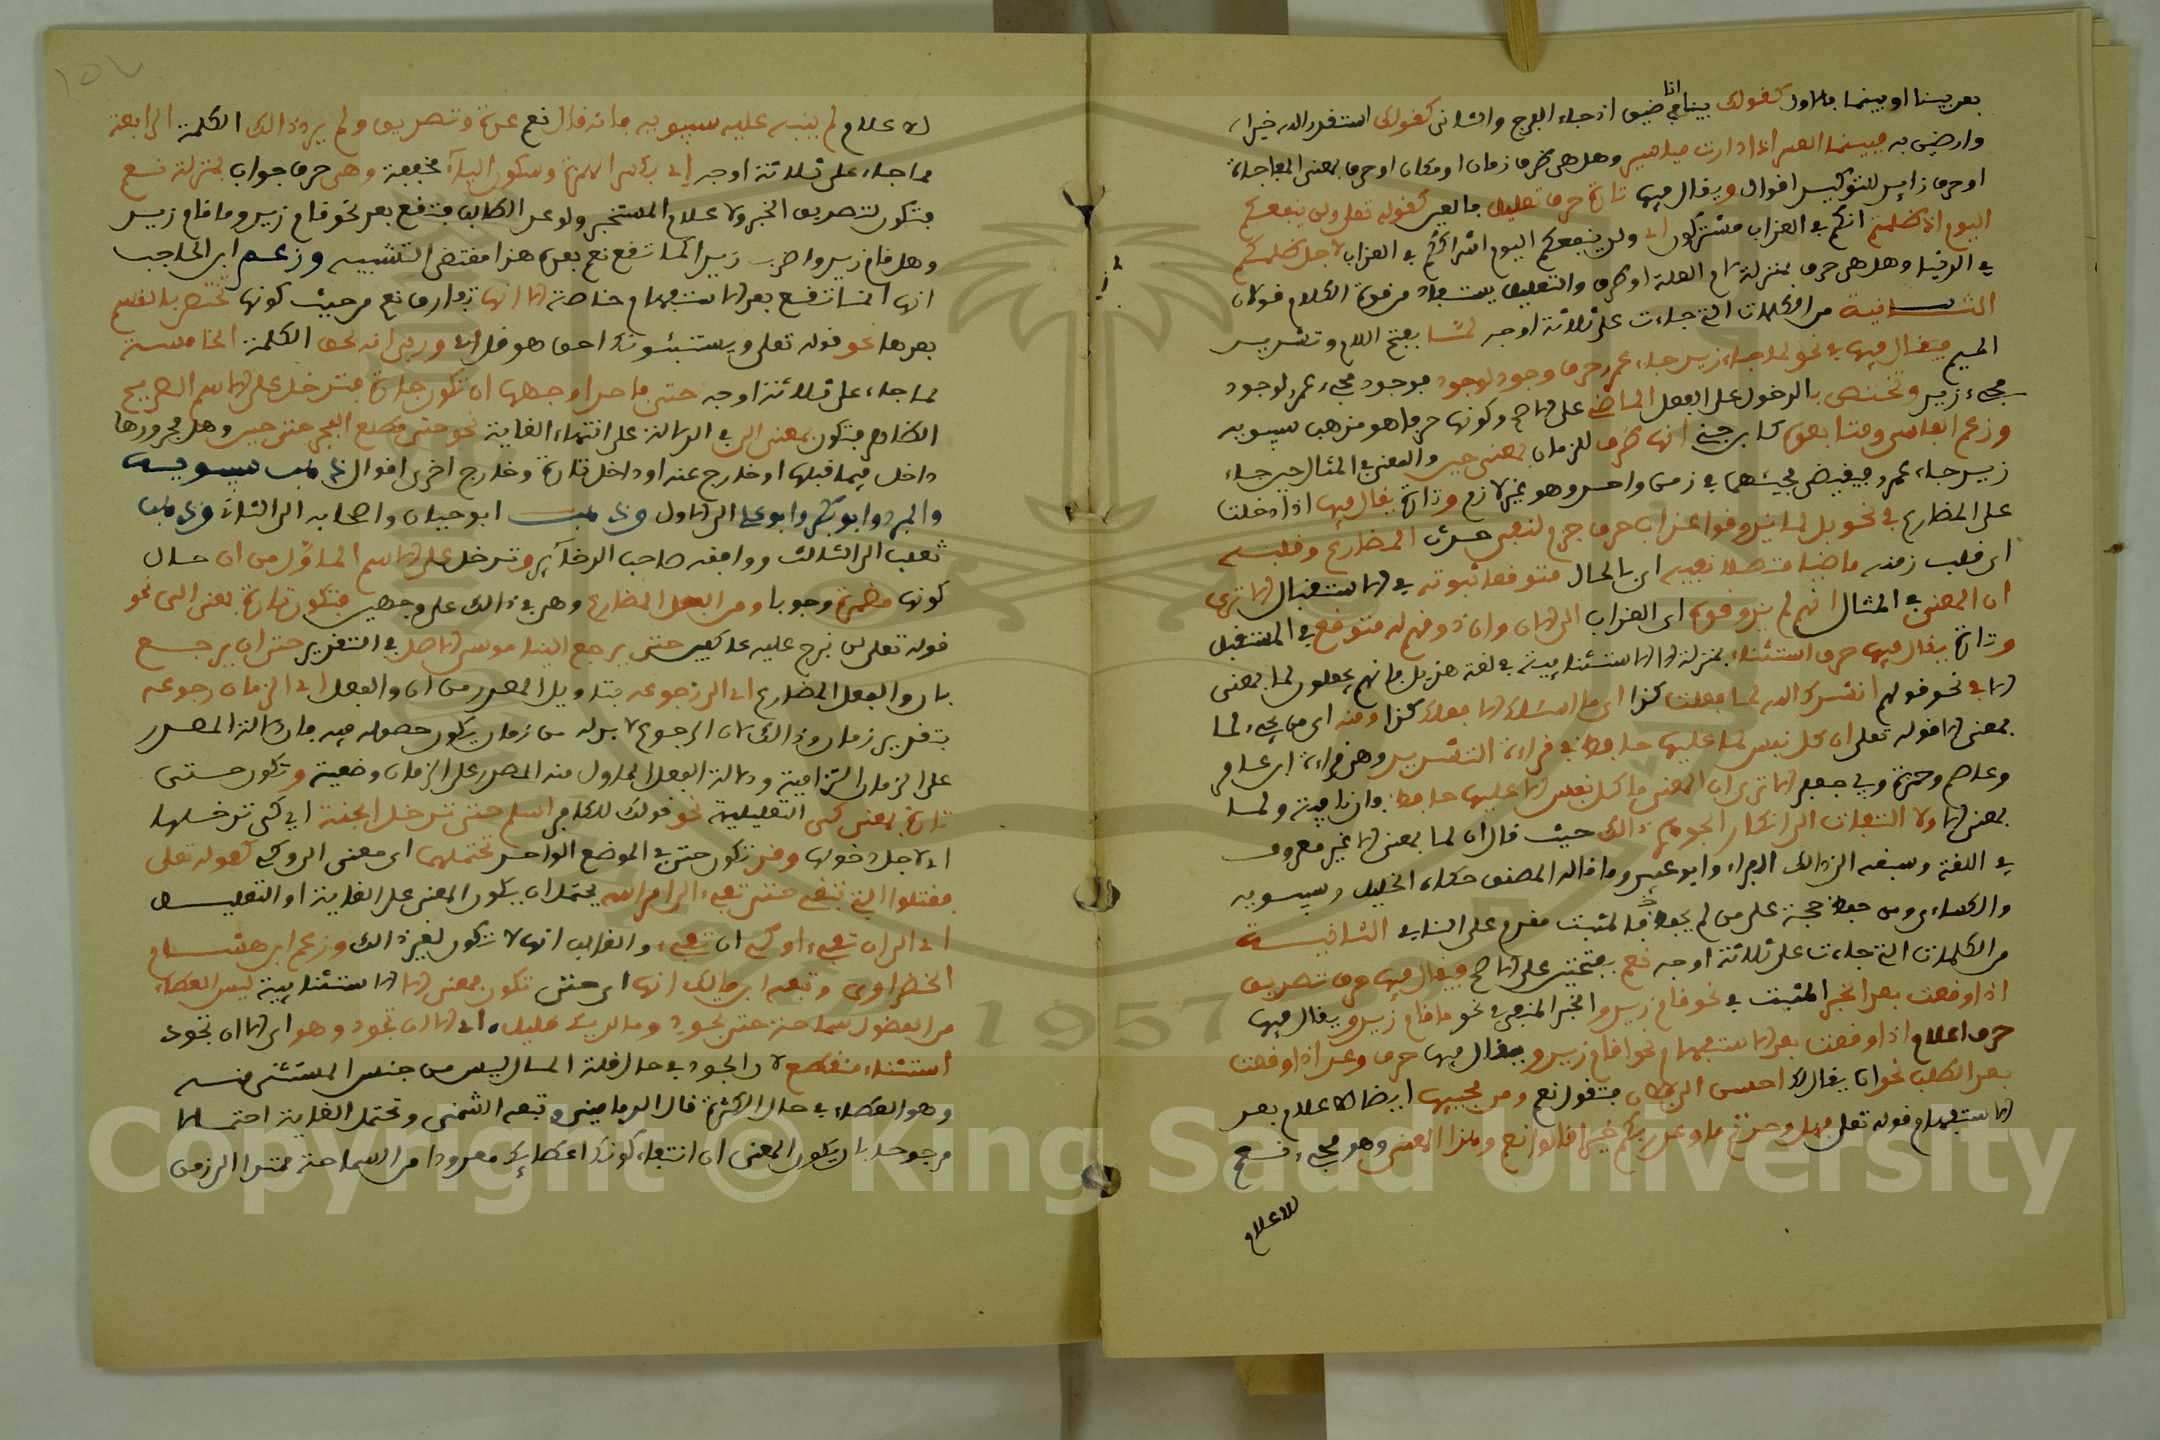 بعد بينا او بينما فالاول كقولك بينا انا في ضيق اذ جاء الفرج والثاني كقولك استقدر الله خيرا
وارضين به فبينما العسر اذا دارت مياسير وهل هي ظرف زمان او مكان او حرف بمعنى المفاجاة
او حرف زايد للتوكيد اقوال ويقال فيها تارة حرف تعليل كقوله تعلى ولن ينفعكم
اليوم اذ ظلمتم انكم في العذاب مشتركون اي ولن ينفعكم اليوم اشراككم في العذاب لاجل ظلمكم
في الدنيا وهل هي حرف بمنزلة لام العلة او ظرف والتعليل يستفاد من قوة الكلام قولان
الثانية من الكلمات التي جاءت على ثلاثة اوجه لما بفتح اللام وتشديد
الميم فيقال فيها في نحو لما جاء زيد جاء عمرو حرف وجود لوجود فوجود مجيء عمرو لوجود
مجيء زيد وتختص بالدخول على الفعل الماضي على الاصح وكونها حرفا هو مذهب سيبويه
وزعم الفاسي ومتابعوه كابن جني انها ظرف للزمان بمعنى حين والمعنى في المثال حين جاء
زيد جاء عمرو فيقتضي مجيئهما في زمن واحد وهو غير لازم وتارة يقال فيها اذا دخلت
على المضارع في نحو بل لما يذوقوا عذاب حرف جزم لنفي حدث المضارع وقلبه
اي قلب زمنه ماضيا متصلا نفيه اي بالحال متوقعا ثبوته في الاستقبال الا ترى
ان المعنى في المثال انهم لم يذوقوه اي العذاب الى الان وان ذوقهم له متوقع في المستقبل
وتارة يقال فيها حرف استثناء بمنزلة الا الاستثنايية في لغة هذيل فانهم يجعلون لما بمعنى
الا في نحو قولهم انشدك الله لما فعلت كذا اي ما اسئلك الا فعلك كذا ومنه اي من مجيء لما
بمعنى الا قوله تعلى ان كل نفس لما عليها حافظ في قراءة التشديد وهي قراءة ابن عامر
وعاصم وحمزة وابي جعفر الا ترى ان المعنى ما كل نفس الا عليها حافظ فان نافية ولما
بمعنى الا ولا التفات الى انكار الجوهري ذالك حيث قال ان لما بمعنى الا غير معروف
في اللغة وسبقه الى ذالك الفراء وابو عبيد وما قاله المصنف حكاه الخليل وسيبويه
والكساءي ومن حفظ حجة على من لم يحفظ فالمثبت مقدم على النافي الثالثة
من الكلمات التي جاءت على ثلاثة اوجه نعم بفتحتين على الاصح فيقال فيها حرف تصديق
اذا وقعت بعد الخبر المثبت في نحو قام زيد والخبر المنفي في نحو ما قام زيد ويقال فيها
حرف اعلام اذا وقعت بعد الاستفهام نحو اقام زيد ويقال فيها حرف وعد اذا وقعت
بعد الطلب نحو ان يقال لك احسن الى فلان فتقول نعم ومن مجييها ايضا للاعلام بعد
الاستفهام قوله تعلى فهل وجدتم ما وعد ربكم حقا قالوا نعم وهذا المعنى وهو مجيء نعم
للاعلام
لاعلام لم ينبه عليه سيبويه فانه قال نعم عدة وتصديق ولم يزد ذالك الكلمة الرابعة
مما جاء على ثلاثة اوجه اي بكسر الهمزة وسكون الياء مخففة وهي حرف جواب بمنزلة نعم
فتكون لتصديق الخبر ولاعلام المستخبر ولوعد الطالب فتقع بعد نحو قام زيد وما قام زيد
وهل قام زيد واضرب زيدا كما تقع نعم بعدهن هذا مقتضى التشبيه وزعم ابن الحاجب
انها انما تقع بعد الاستفهام خاصة الا انها تفارق نعم من حيث كونها تختص بالقسم
بعدها نحو قوله تعلى ويستنبئونك احق هو قل اي وربي انه لحق الكلمة الخامسة
مما جاء على ثلاثة اوجه حتى فاحد اوجهها ان تكون جارة فتدخل على الاسم الصريح
الظاهر فتكون بمعنى الى في الدلالة على انتهاء الغاية نحو حتى مطلع الفجر حتى حين وهل مجرورها
داخل فيما قبلها او خارج عنه او داخل تارة وخارج اخرى اقوال ذهب سيبويه
والمبرد وابو بكر وابو علي الى الاول وذهب ابو حيان واصحابه الى الثاني وذهب
ثعلب الى الثالث ووافقه صاحب الذخاير وتدخل على الاسم المأوّل من ان حال
كونها مضمرة وجوبا ومن الفعل المضارع وهي في ذالك على وجهين فتكون تارة بمعنى الى نحو
قوله تعلى لن نبرح عليه عاكفين حتى يرجع الينا موسى الاصل في التقدير حتى ان يرجع
بان والفعل المضارع اي الى رجوعه بتاويل المصدر من ان والفعل اي الى زمان رجوعه
بتقدير زمان وذالك لان الرجوع لا بد له من زمان يكون حصوله فيه فان دلالة المصدر
على الزمان التزامية ودلالة الفعل المأول منه المصدر على الزمان وضعية وتكون حتى
تارة بمعنى كي التعليلية نحو قولك للكافر اسلم حتى تدخل الجنة اي كي تدخلها
اي لاجل دخولها وقد تكون حتى في الموضع الواحد تحتملهما اي معنى الى وكي كقوله تعلى
فقتلوا التي تبغي حتى تفيء الى امر الله يحتمل ان يكون المعنى على الغاية او التعليل
اي الى ان تفيء او كي ان تفيء والغالب انها لا تكون لغير ذالك وزعم ابن هشام
الخضراوي وتبعه ابن مالك انها اي حتى تكون بمعنى الا الاستثنايية ليس العطاء
من الفضول سماحة حتى تجود وما لديك قليل اي الا ان تجود وهو اي الا ان تجود
استثناء منقطع لان الجود في حال قلة المال ليس من جنس المستثنى منه
وهو العطاء في حال الكثرة قال الدماميني وتبعه الشمني وتحتمل الغاية احتمالا
مرجوحا بان يكون المعنى ان انتفاء كونك اعطايك معدودا من السماحة ممتدا الى زمن